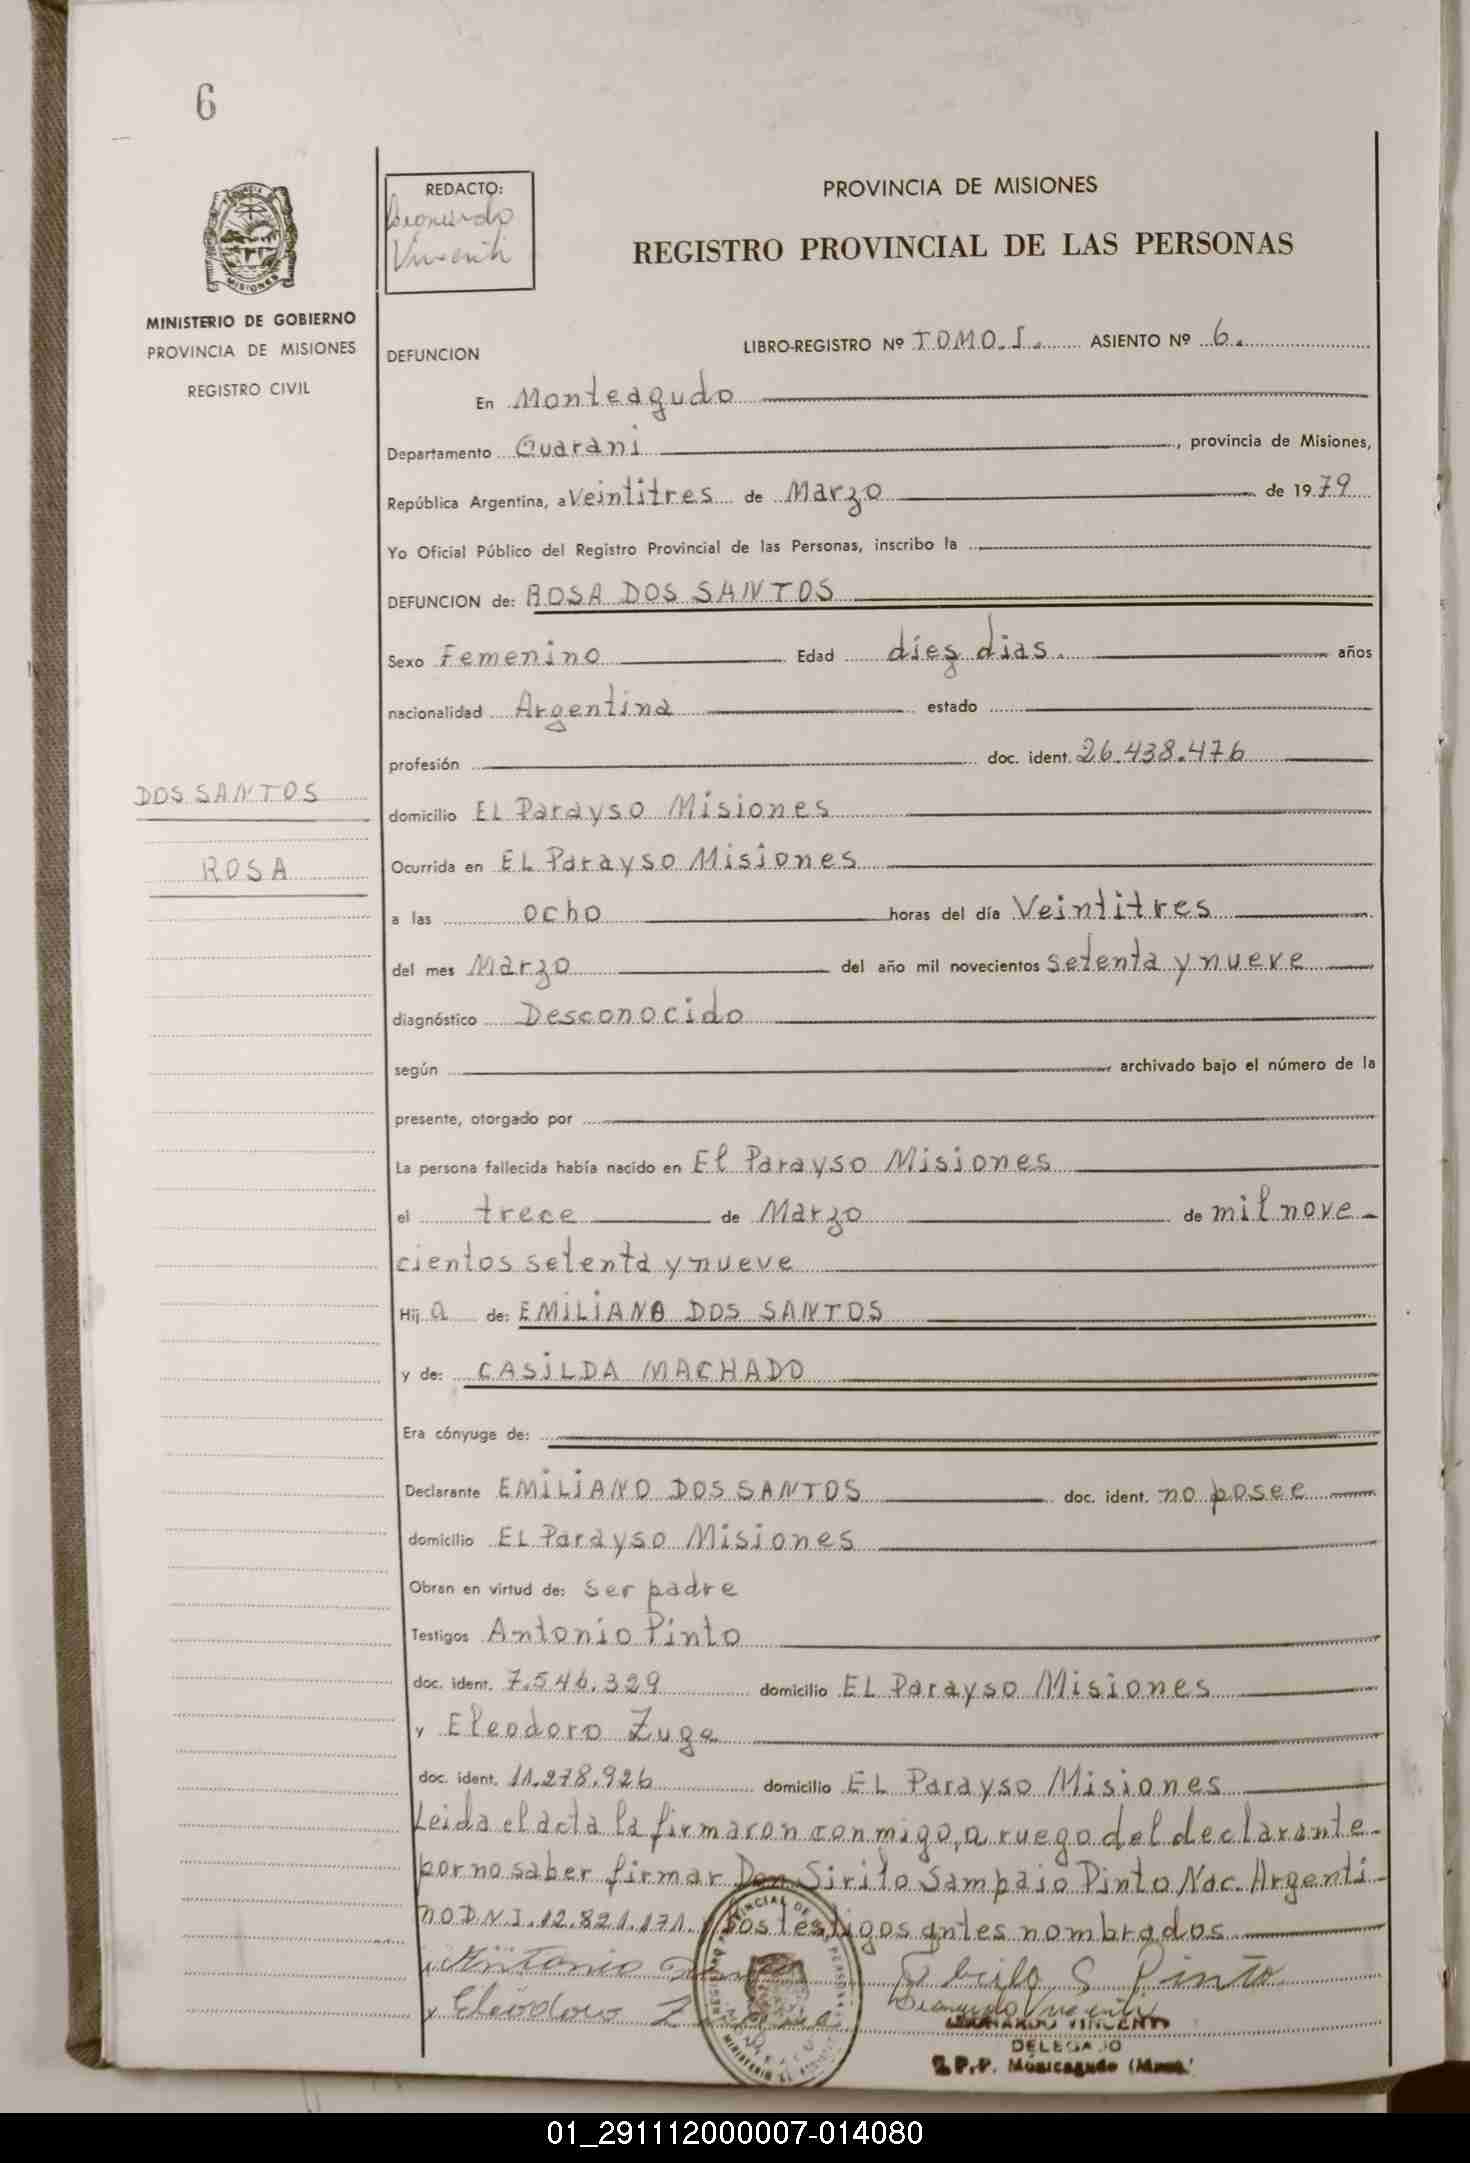 6
REDACTO:
Leonardo
Vincenti
PROVINCIA DE MISIONES
REGISTRO PROVINCIAL DE LAS PERSONAS
MISIONES
MINISTERIO DE GOBIERNO
PROVINCIA DE MISIONES
REGISTRO CIVIL
DEFUNCION
LIBRO-REGISTRO Nº TOMO.I. ASIENTO Nº 6.
En Monteagudo
Departamento Guarani, provincia de Misiones,
República Argentina, a Veintitres de Marzo de 1979
Yo Oficial Público del Registro Provincial de las Personas, inscribo la
DEFUNCION de: ROSA DOS SANTOS
Sexo Femenino Edad díez dias. años
nacionalidad Argentina estado
profesión doc. ident. 26.438.476
DOS SANTOS
ROSA
domicilio EL Parayso Misiones
Ocurrida en EL Parayso Misiones
a las ocho horas del día Veintitres
del mes Marzo del año mil novecientos setenta y nueve
diagnóstico Desconocido
según archivado bajo el número de la
presente, otorgado por
La persona fallecida había nacido en El Parayso Misiones
el trece de Marzo de mil nove-
cientos setenta y nueve
Hij a de: EMILIANO DOS SANTOS
y de: CASILDA MACHADO
Era cónyuge de:
Declarante EMILIANO DOS SANTOS doc. ident. no posee
domicilio EL Parayso Misiones
Obran en virtud de: ser padre
Testigos Antonio Pinto
doc. ident. 7.546.329 domicilio EL Parayso Misiones
y Eleodoro Zuge
doc. ident. 11.278.926 domicilio EL Parayso Misiones
Leida el acta la firmaron conmigo, a ruego del declarante
por no saber firmar Don Sirilo Sampaio Pinto Nac. Argenti-
no D.N.I. 12.821.171. y los testigos antes nombrados
Antonio S Pinto
y Eleodoro Leonardo Vincenti
LEONARDO VINCENTI
DELEGADO
01_291112000007-014080